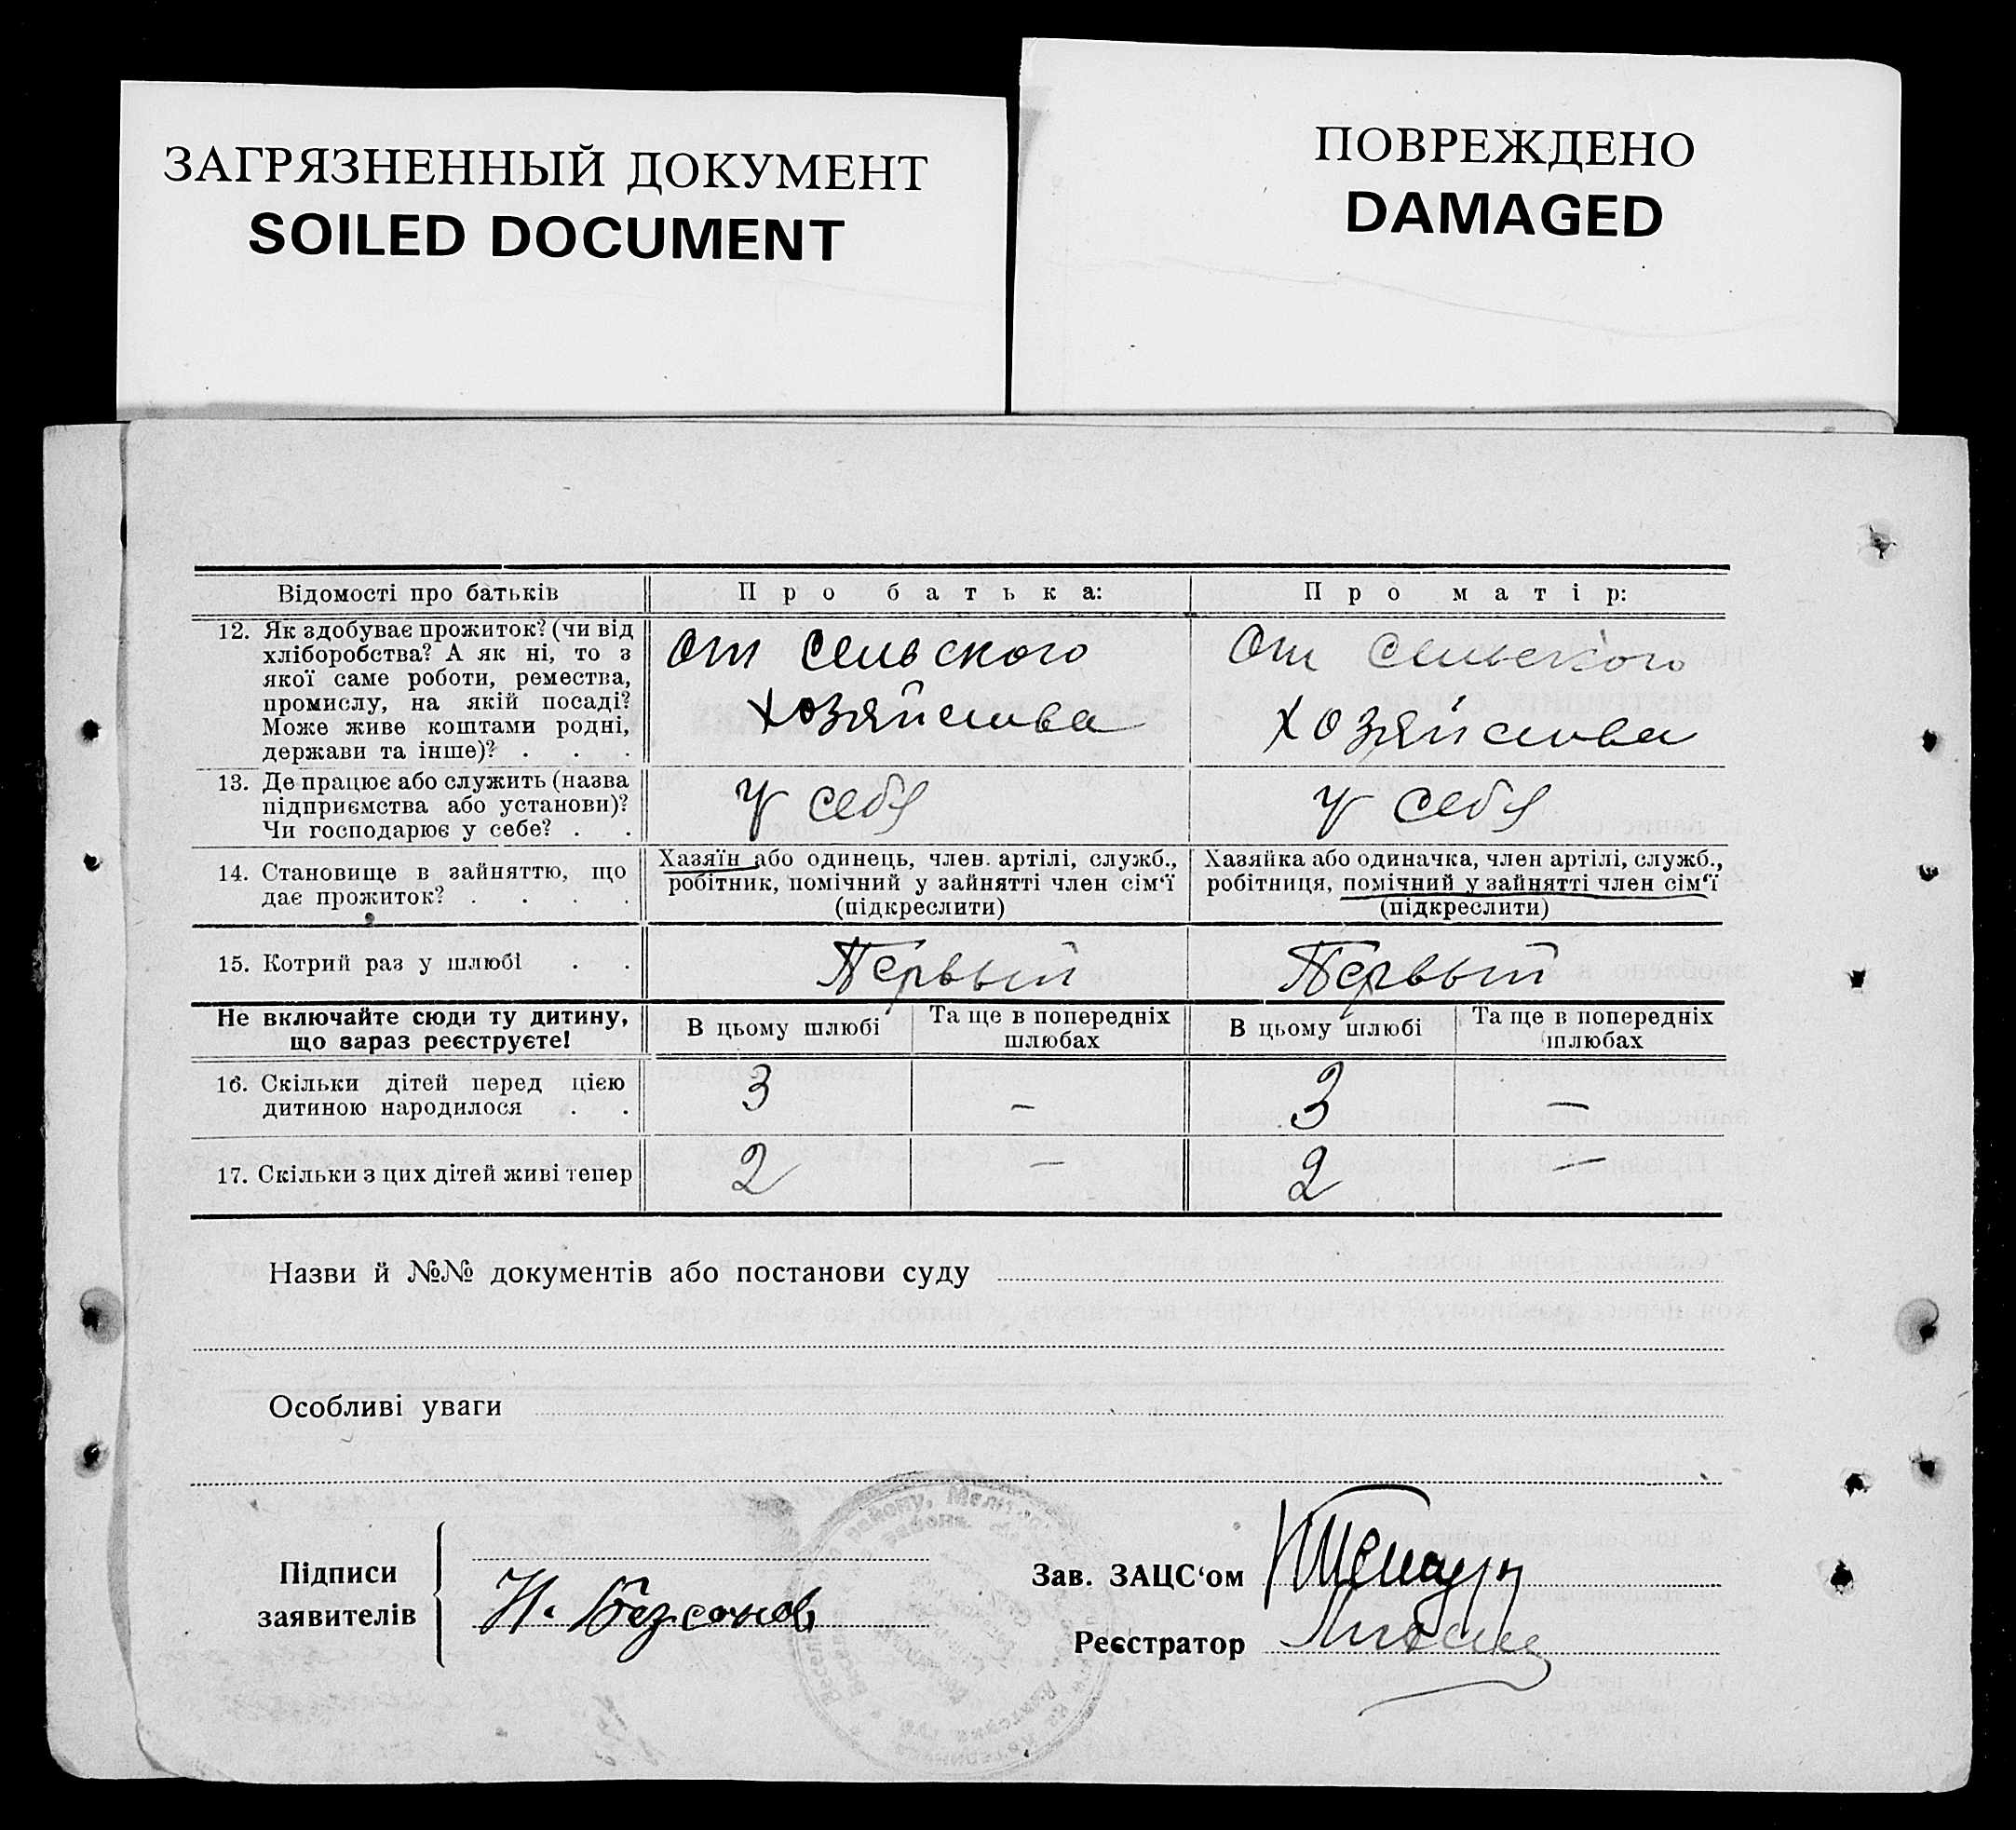 ЗАГРЯЗНЕННЫЙ ДОКУМЕНТ
SOILED DOCUMENT
ПОВРЕЖДЕНО
DAMAGED
Відомості про батьків
Про батька:
Про матір:
12. Як здобуває прожиток? (чи від
хліборобства? А як ні, то з
якої саме роботи, ремества,
промислу, на якій посаді?
Може живе коштами родні,
держави та інше)? . . .
От сельского
хозяйства
От сельского
хозяйства
13. Де працює або служить (назва
підприємства або установи)?
Чи господарює у себе? . .
У себя
У себя
14. Становище в зайняттю, що
дає прожиток? . . . .
Хазяїн або одинець, член. артілі, служб.,
робітник, помічний у зайнятті член сім‘ї
(підкреслити)
Хазяйка або одиначка, член артілі, служб.,
робітниця, помічний у зайнятті член сім‘ї
(підкреслити)
15. Котрий раз у шлюбі . .
Первый
Первый
Не включайте сюди ту дитину,
що зараз реєструєте!
В цьому шлюбі
Та ще в попередніх
шлюбах
В цьому шлюбі
Та ще в попередніх
шлюбах
16. Скільки дітей перед цією
дитиною народилося . .
3
—
3
—
17. Скільки з цих дітей живі тепер
2
—
2
—
Назви й №№ документів або постанови суду
Особливі уваги
Підписи
заявителів
Н. Безсонов
Зав. ЗАЦС‘ом
Реєстратор
району, Меліт